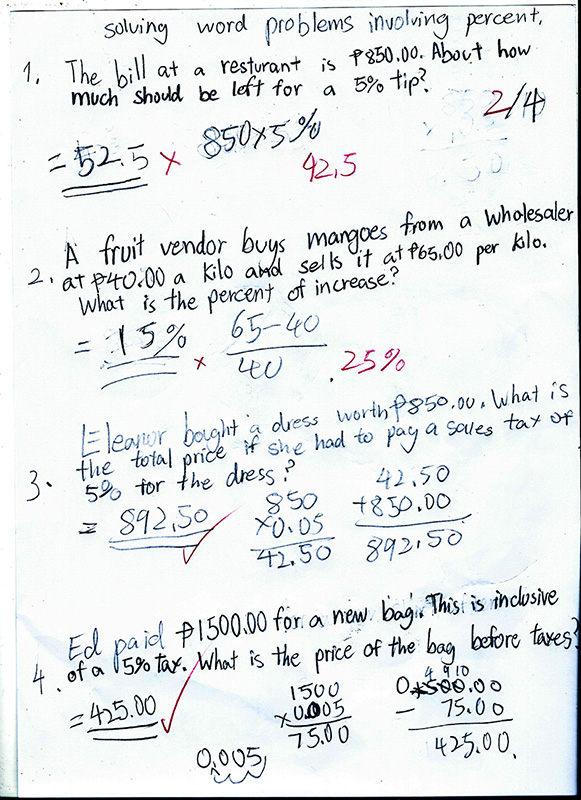 solving word problems involving percent.
1. The bill at a resturant is ₱850.00. About how
much should be left for a 5% tip?
2/4
850x5%
= 52.5 x
42.5
A fruit vendor buys mangoes from a wholesaler
2. at ₱40.00 a kilo and sells it at ₱65.00 per kilo.
What is the percent of increase?
= 15% x
65-40
40
.25%
Eleanor bought a dress worth ₱850.00. What is
the total price if she had to pay a sales tax of
3. 5% for the dress?
= 892.50 ✓
850
x0.05
42.50
42.50
+850.00
892.50
Ed paid ₱1500.00 for a new bag. This is inclusive
4. of a 5% tax. What is the price of the bag before taxes?
= 425.00 ✓
1500
x0.005
75.00
0.005
4 9 10
500.00
- 75.00
425.00.